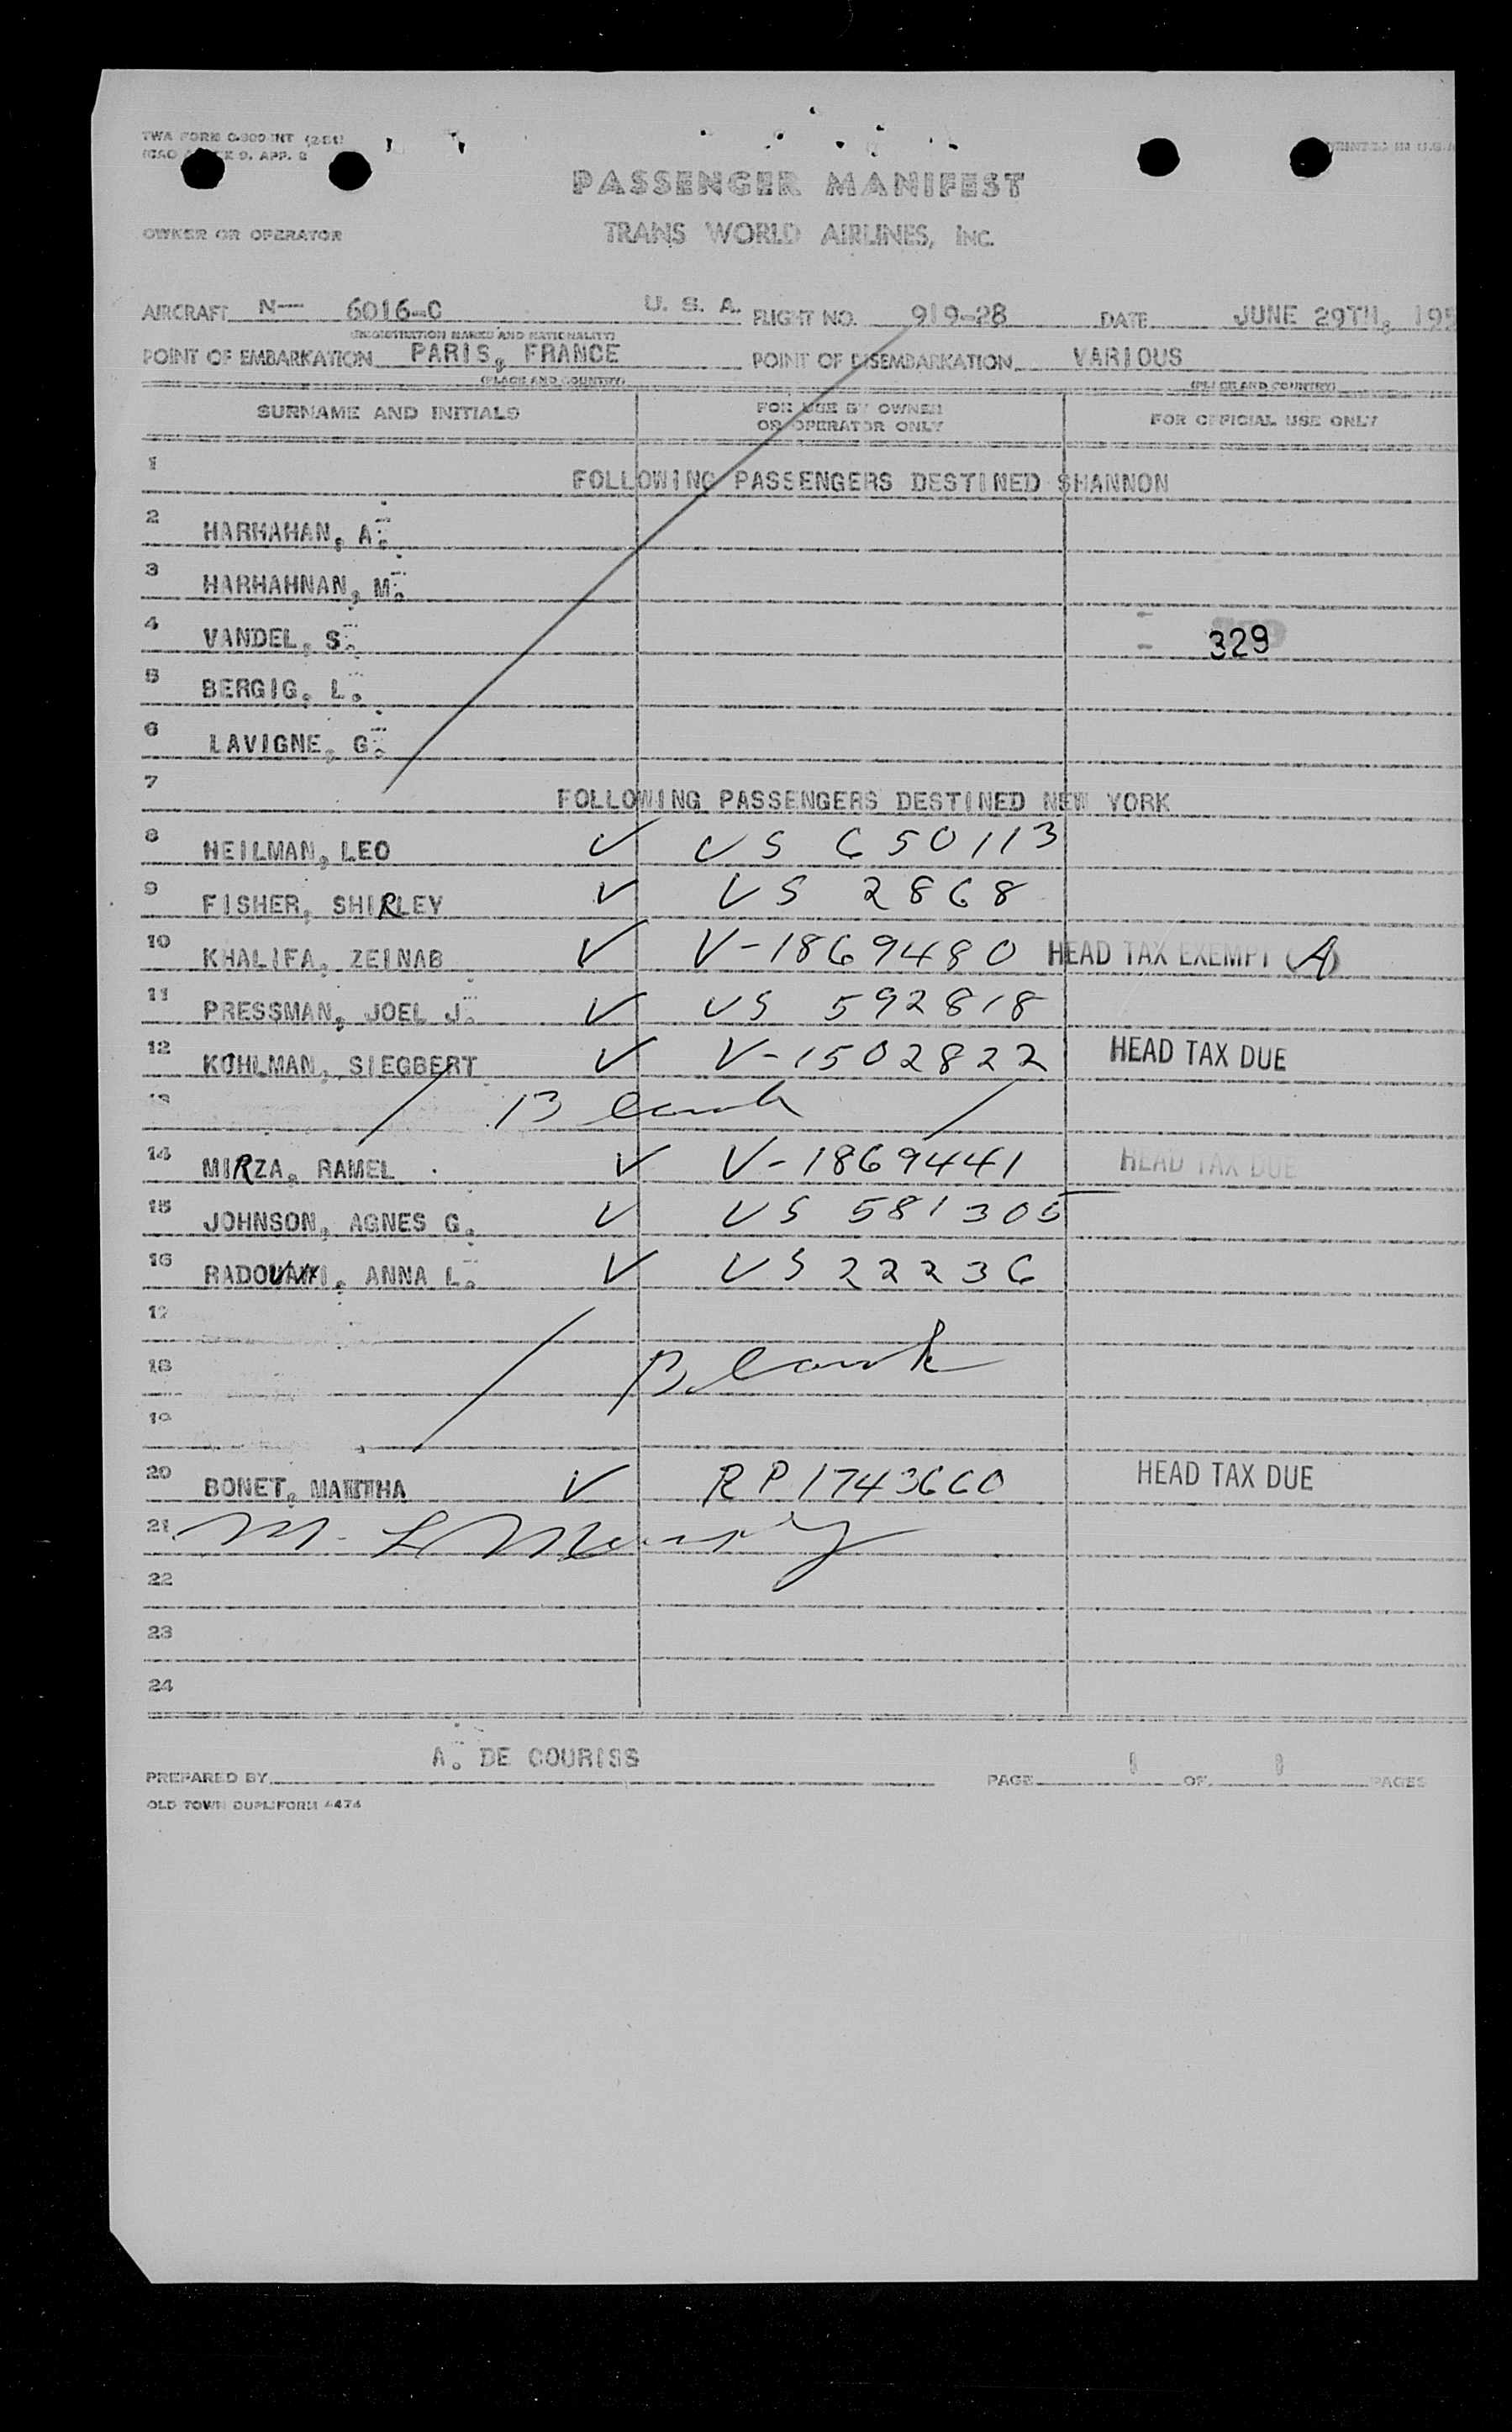 TWA FORM
APP. 2
PRINTED IN U.S.A
PASSENGER MANIFEST
OWNER OR OPERATOR
TRANS WORLD AIRLINES, INC.
AIRCRAFT N— 6016-C U. S. A. FLIGHT NO. 919-28 DATE JUNE 29TH, 195
(REGISTRATION MARKS AND NATIONALITY)
POINT OF EMBARKATION PARIS, FRANCE POINT OF DISEMBARKATION VARIOUS
(PLACE AND COUNTRY) (PLACE AND COUNTRY)
SURNAME AND INITIALS FOR USE BY OWNER OR OPERATOR ONLY FOR OFFICIAL USE ONLY
1 FOLLOWING PASSENGERS DESTINED SHANNON
2 HARHAHAN, A.
3 HARHAHNAN, M.
4 VANDEL, S. 329
5 BERGIG, L.
6 LAVIGNE, G.
7 FOLLOWING PASSENGERS DESTINED NEW YORK
8 HEILMAN, LEO ✓ US 650113
9 FISHER, SHIRLEY ✓ US 2868
10 KHALIFA, ZEINAB ✓ V-1869480 HEAD TAX EXEMPT (A)
11 PRESSMAN, JOEL J. ✓ US 592818
12 KOHLMAN, SIEGBERT ✓ V-1502822 HEAD TAX DUE
13 Blank
14 MIRZA, RAMEL ✓ V-1869441 HEAD TAX DUE
15 JOHNSON, AGNES G. ✓ US 581305
16 ANNA L. ✓ US 22236
17
18 Blank
19
20 BONET, ✓ RP 1743660 HEAD TAX DUE
21 M. L.
22
23
24
PREPARED BY A. DE COURISS PAGE 1 OF 1 PAGES
OLD TOWN DUPLIFORM 4474